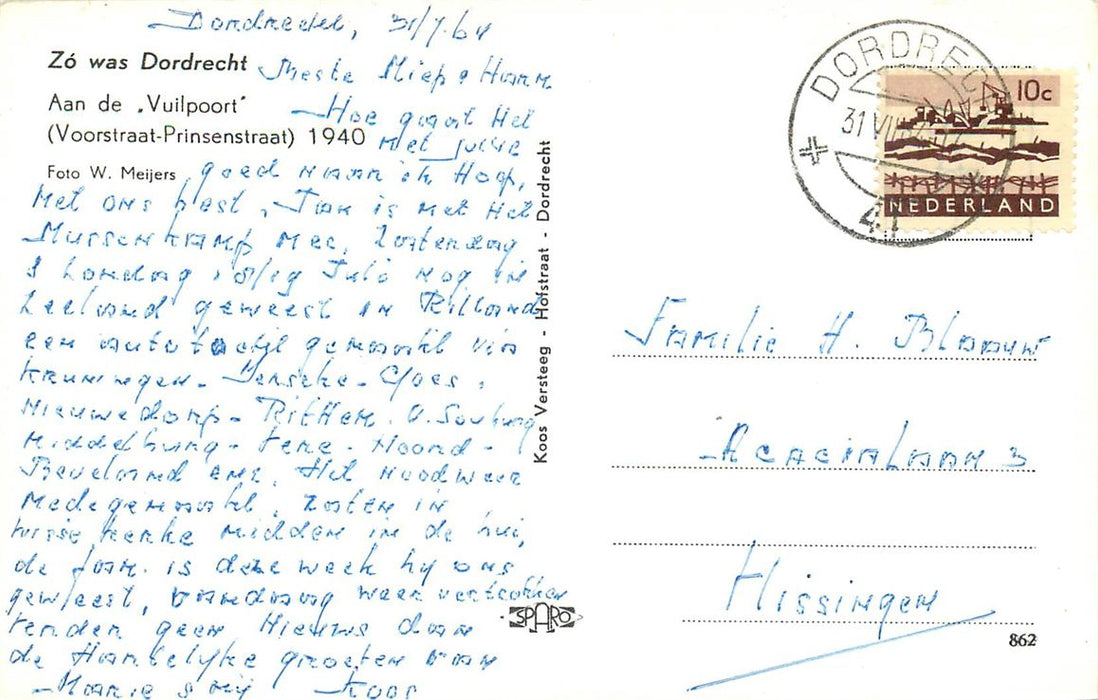 Dordrecht, 31/7.64
Zó was Dordrecht
Aan de „Vuilpoort"
(Voorstraat-Prinsenstraat) 1940
Foto W. Meijers
Beste Miep & Harm.
Hoe gaat Het
met jullie
goed naar ik Hoop,
met ons best, Jan is met Het
Mussenkamp mee, Zaterdag
& Zondag Juli nog in
Zeeland geweest in Rilland
een autotochtje gemaakt via
Kruiningen - Yerseke - Goes,
Nieuwedorp - Ritthem. O. Souburg
Middelburg - Vere - Noord -
Beveland enz. Het noodweer
medegemaakt, zaten in
Wissekerke midden in de bui,
de Jan. is deze week by ons
geweest, vandaag weer vertrokken
verder geen Nieuws dan
de Hartelyke groeten van
Marie & my Koos
Koos Versteeg - Hofstraat - Dordrecht
SPARO
DORDRECHT
31 VII
41
10c
NEDERLAND
Familie H. Blaauw
Acacialaan 3
Vlissingen
862